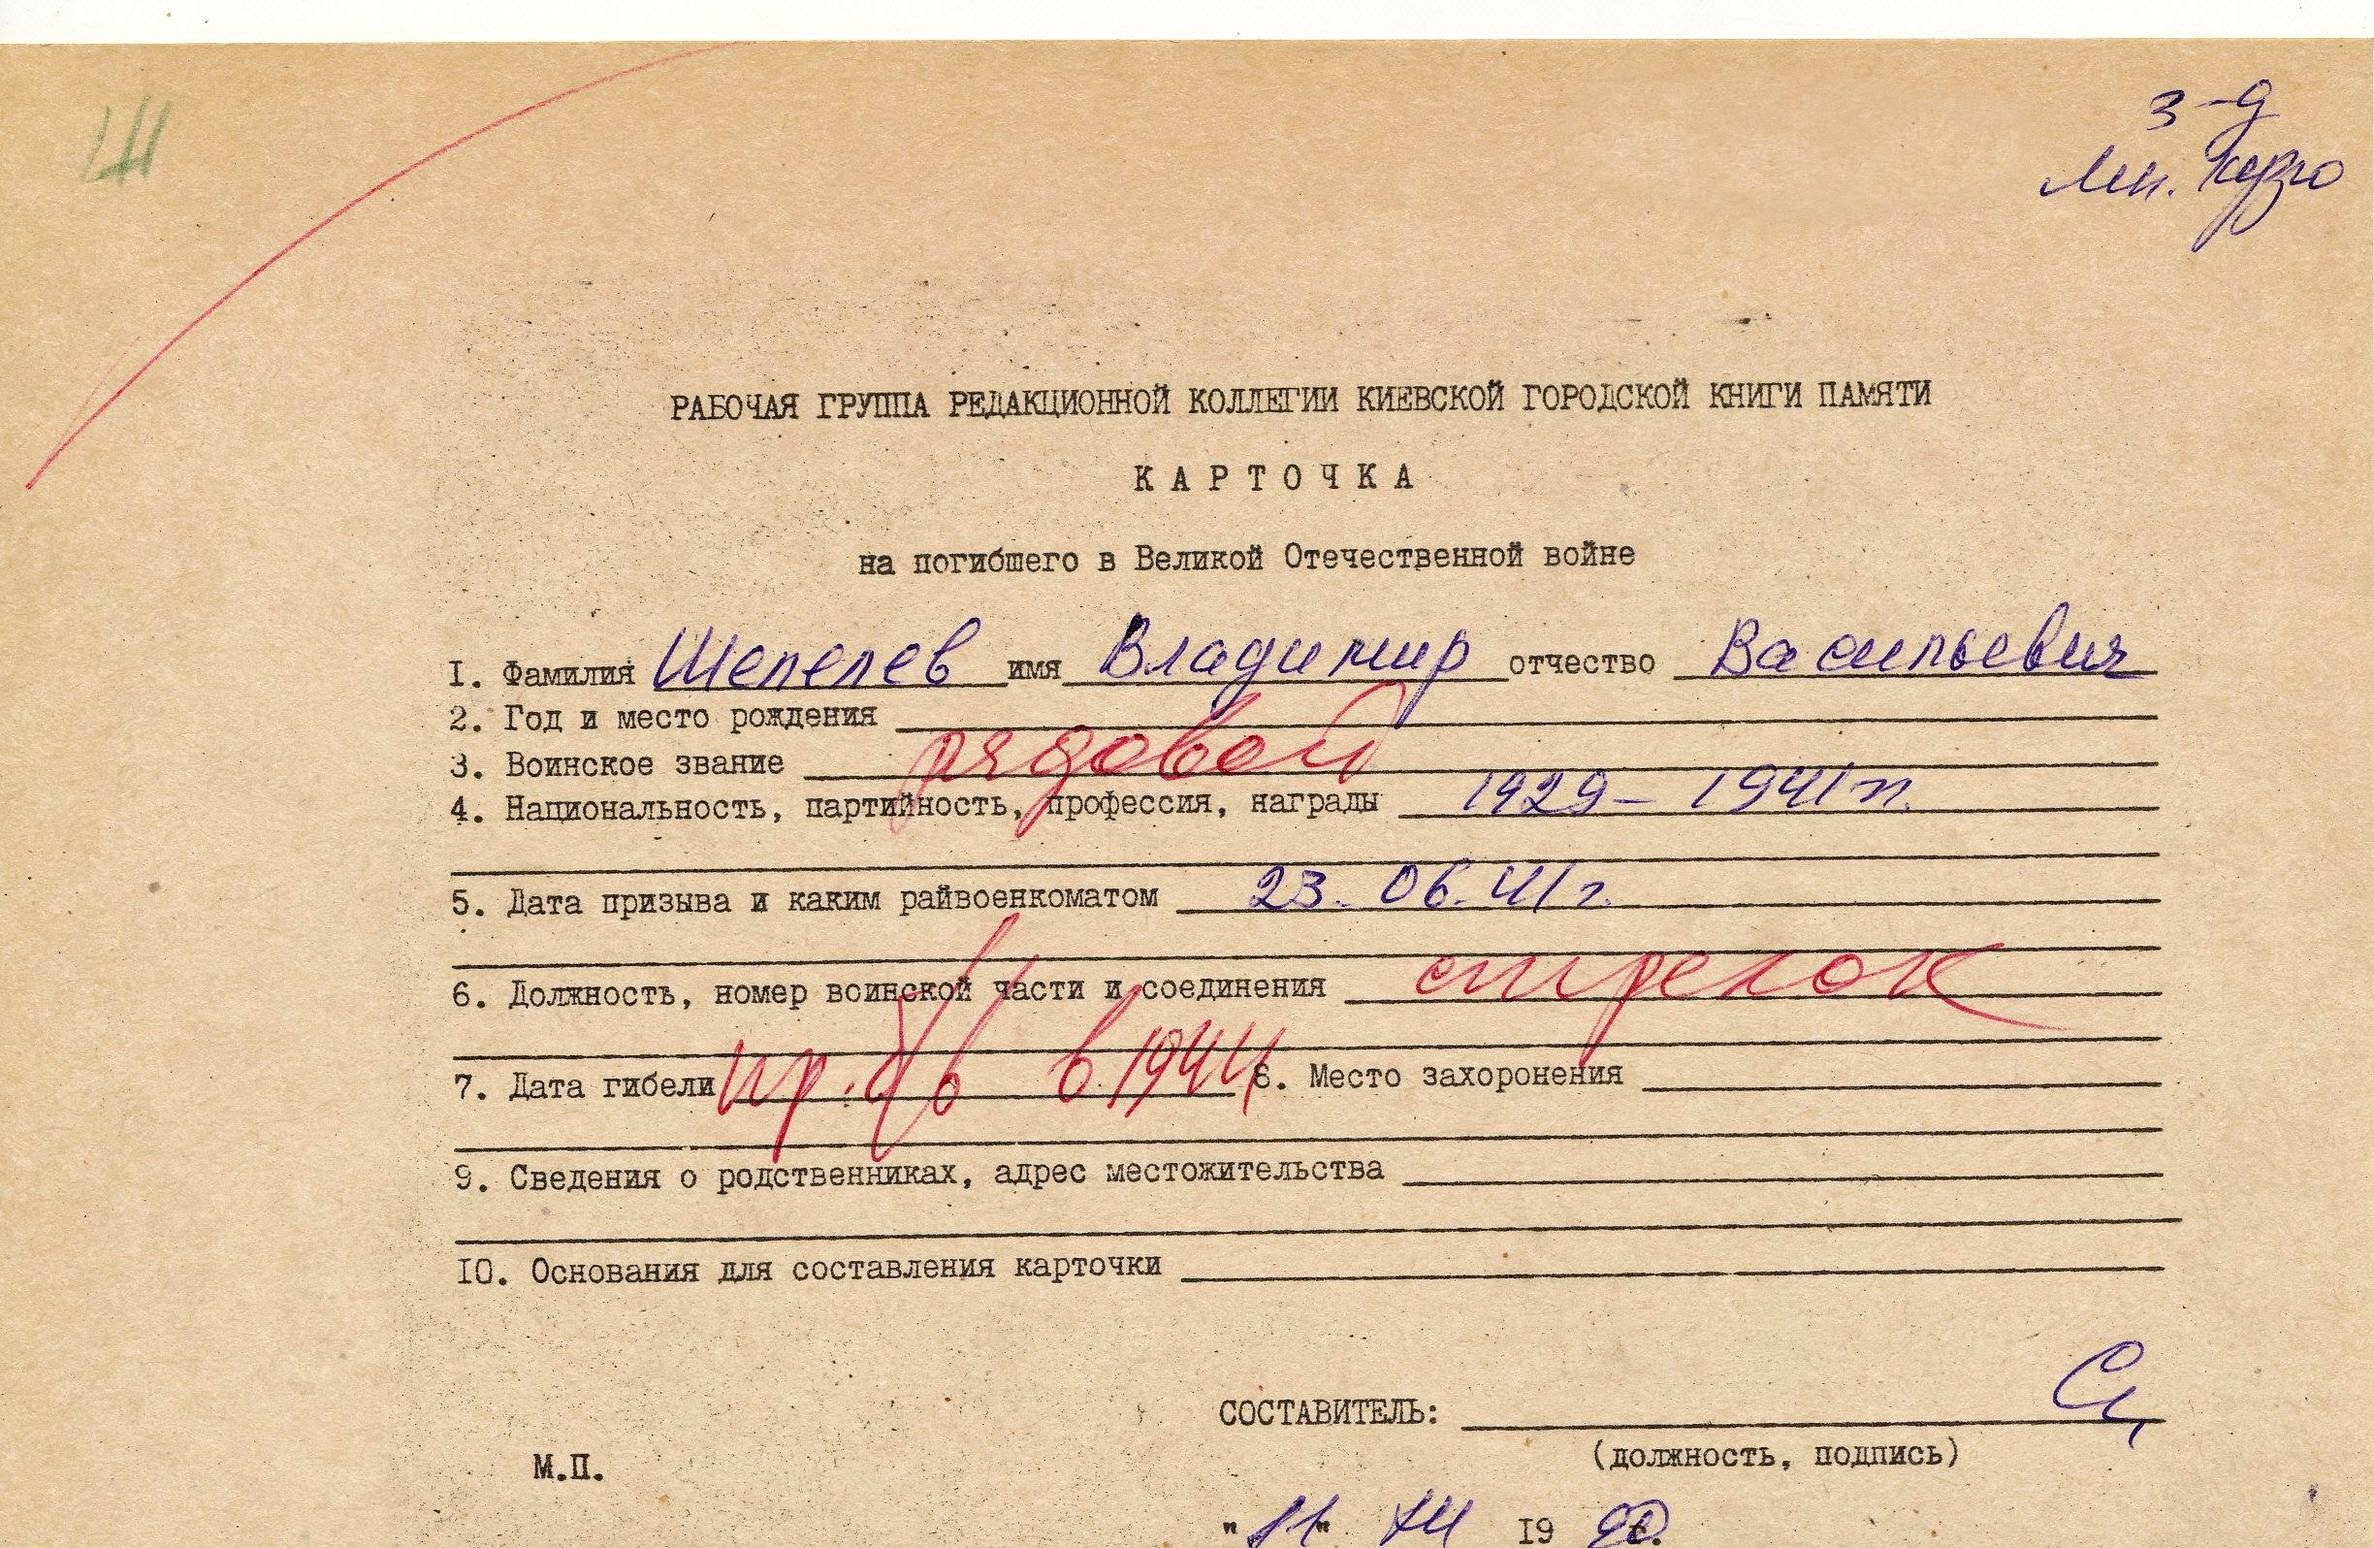 Ш
з-д
Лен. Кузю
РАБОЧАЯ ГРУППА РЕДАКЦИОННОЙ КОЛЛЕГИИ КИЕВСКОЙ ГОРОДСКОЙ КНИГИ ПАМЯТИ
КАРТОЧКА
на погибшего в Великой Отечественной войне
I. Фамилия Шепелев имя Владимир отчество Васильевич
2. Год и место рождения
3. Воинское звание рядовой
4. Национальность, партийность, профессия, награды 1929 – 1941 гг.
5. Дата призыва и каким райвоенкоматом 23. 06. 41 г.
6. Должность, номер воинской части и соединения стрелок
7. Дата гибели пр. б/в в 1944 8. Место захоронения
9. Сведения о родственниках, адрес местожительства
IO. Основания для составления карточки
СОСТАВИТЕЛЬ:
(должность, подпись)
М.П.
"11" XII I9 90г.